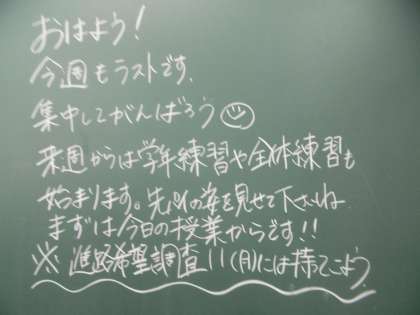 おはよう!
今週もラストです.
集中してがんばろう
来週からは学年練習や全体練習も
始まります。先パイの姿を見せて下さいね
まずは今日の授業からです!!
※ 進路希望調査 11(月)には持てこよう